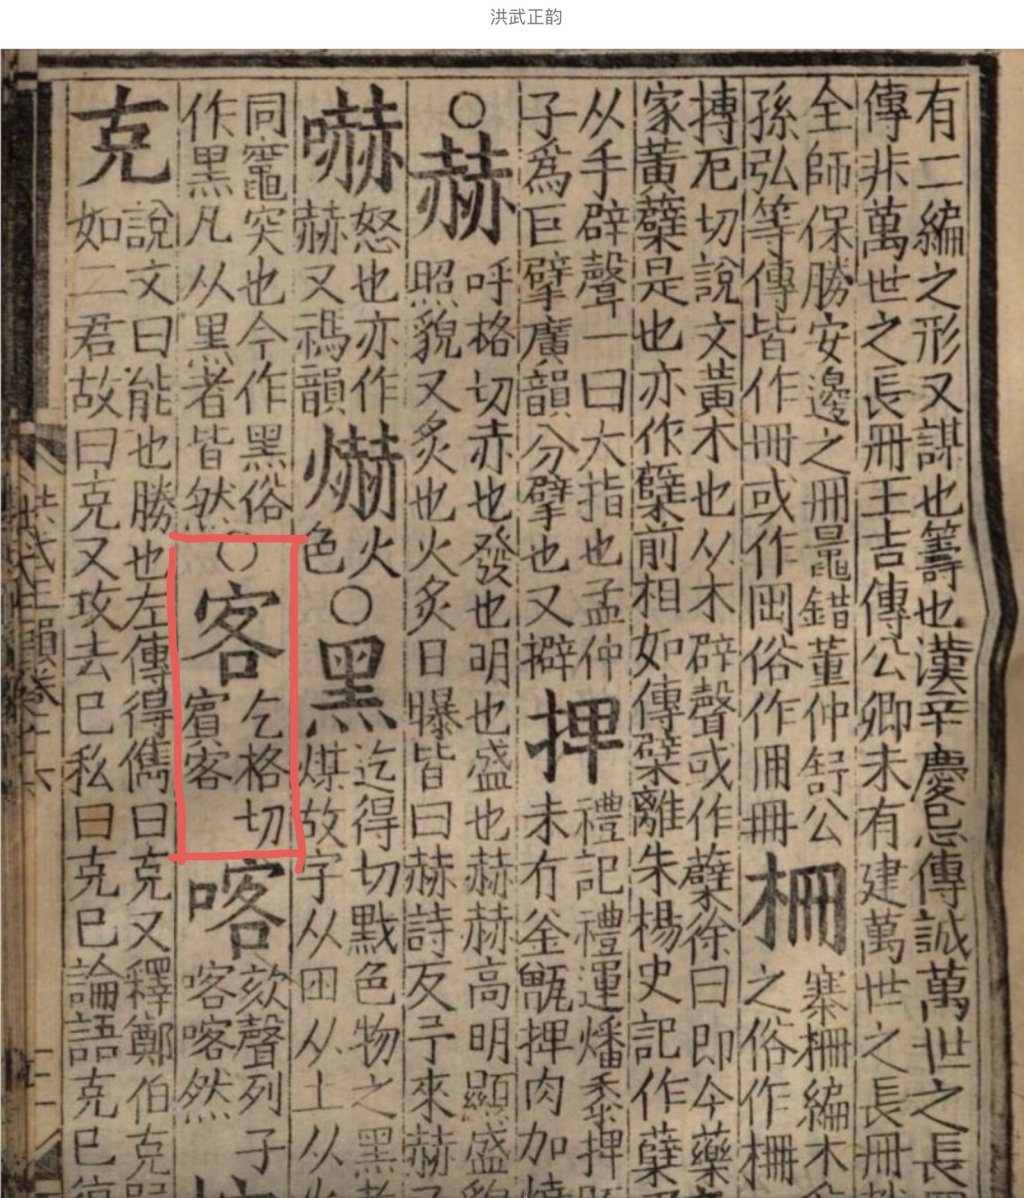 洪武正韵
有二編之形又謀也籌也漢辛慶忌傳誠萬世之長
傳非萬世之長冊王吉傳公卿未有建萬世之長冊
全師保勝安邊之冊鼂錯董仲舒公
孫弘等傳皆作冊或作𠕋俗作𠕁冊
柵
寨柵編木
之俗作柵
摶厄切說文黃木也从木辟聲或作蘗徐曰即今藥
家黃蘗是也亦作檗前相如傳檗離朱楊史記作蘗
从手辟聲一曰大指也孟仲
子為巨擘廣韻分擘也又擗
押
禮記禮運燔黍捭
未有釜甑捭肉加燒
○赫
呼格切赤也發也明也盛也赫赫高明顯盛
照貌又炙也火炙日曝皆曰赫詩反予來赫
嚇
怒也亦作
赫又禡韻
爀
火
色
○黑
迄得切黓色物之黑
煤故字从囪从土从
同竈突也今作黑俗
作黑凡从黑者皆然
○客
乞格切
賓客
喀
欬聲列子
喀喀然
克
說文曰能也勝也左傳得儁曰克又釋鄭伯克
如二君故曰克又攻去已私曰克已論語克已復
洪武正韻卷